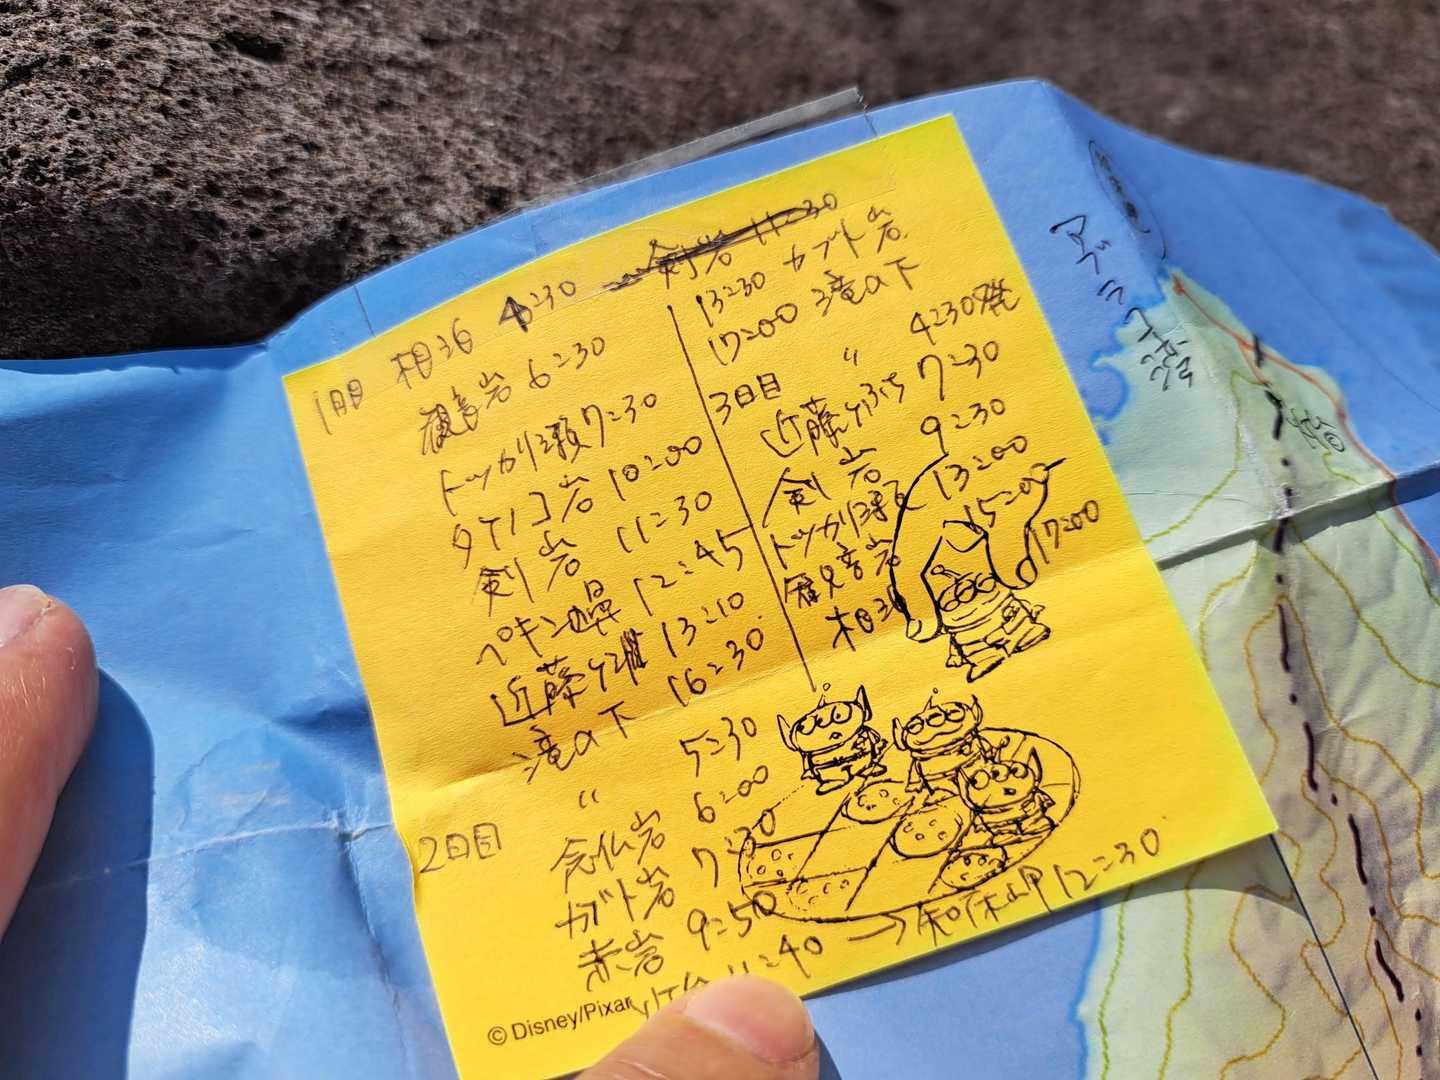 1日目 相泊 4:30
観音岩 6:30
トッカリ瀬 7:30
タケノコ岩 10:00
剣岩 11:30
ペキン鼻 12:45
近藤ヶ淵 13:10
滝の下 16:30
2日目 〃 5:30
念仏岩 6:00
カブト岩 7:30
赤岩 9:50
11:40 → 知床岬 12:30
剣岩 11:30
13:30 カブト岩
17:00 滝の下
3日目 〃 4:30発
近藤ヶふち 7:30
剣岩 9:30
トッカリ瀬 13:00
観音岩 15:00
相泊 17:00
© Disney/Pixar